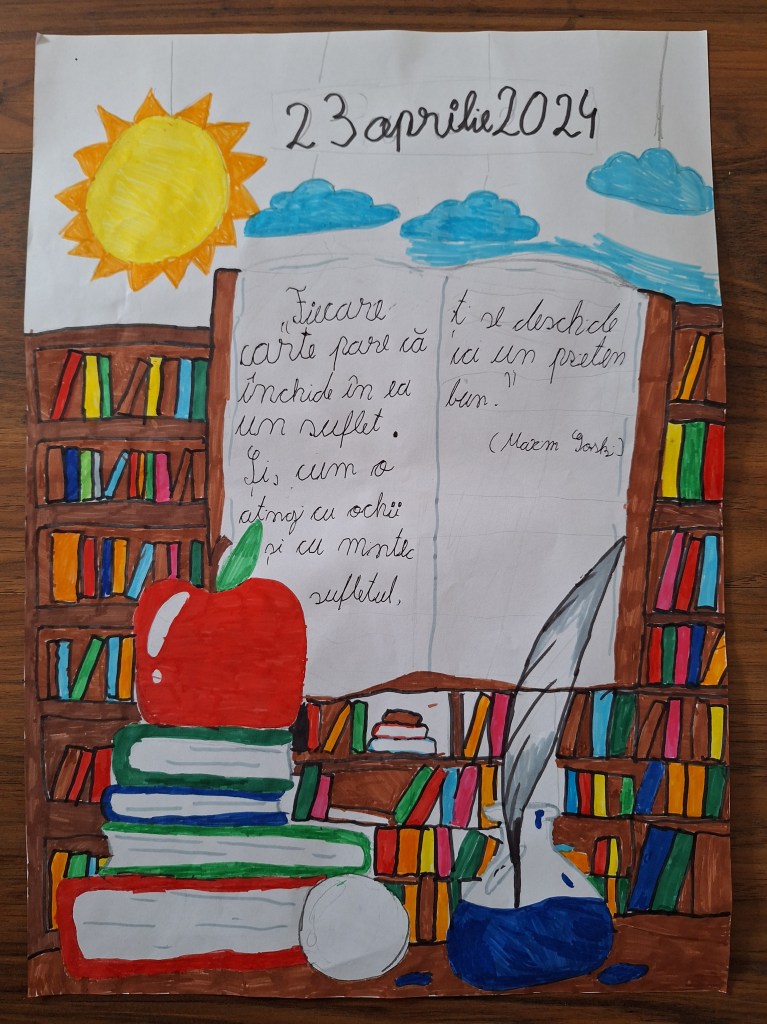 23 aprilie 2024
„Fiecare
carte pare că
închide în ea
un suflet.
Și, cum o
atnoj cu ochii
și cu mntec
sufletul,
ți se deschde
ca un preten
bun."
(Maxm Gorki)